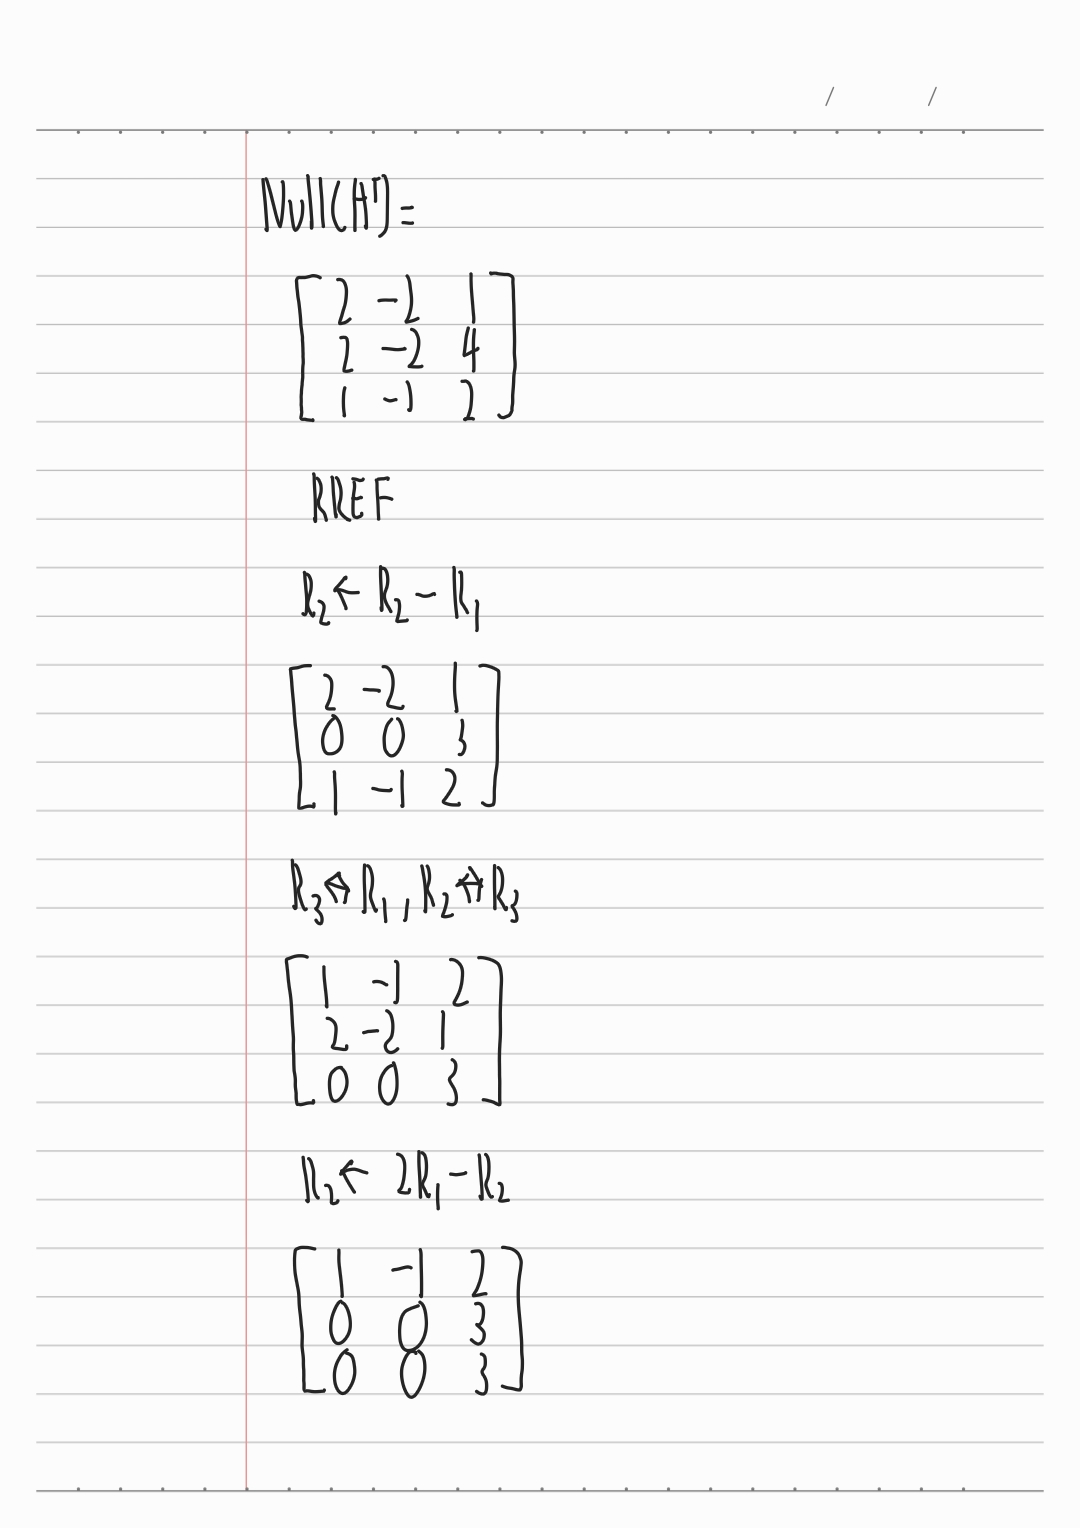 / /
Null(Aᵀ) =
[ 2 -2 1 ]
[ 2 -2 4 ]
[ 1 -1 2 ]
RREF
R₂ ← R₂ - R₁
[ 2 -2 1 ]
[ 0 0 3 ]
[ 1 -1 2 ]
R₃ ↔ R₁, R₂ ↔ R₃
[ 1 -1 2 ]
[ 2 -2 1 ]
[ 0 0 3 ]
R₂ ← 2R₁ - R₂
[ 1 -1 2 ]
[ 0 0 3 ]
[ 0 0 3 ]